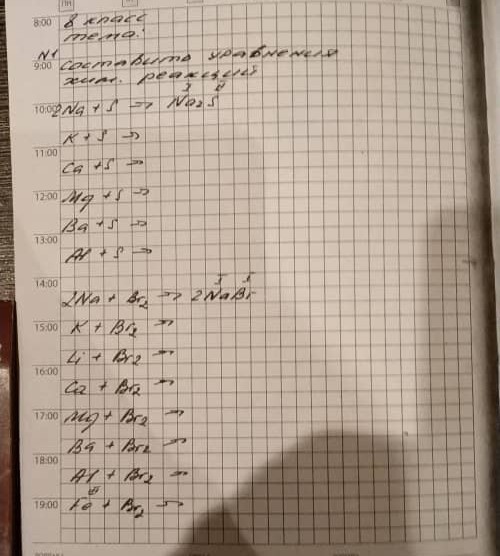 8:00 8 класс
тема:
N1
9:00 составить уравнения
хим. реакций
I II
10:00 2Na + S → Na2S
K + S →
11:00
Ca + S →
12:00 Mg + S →
Ba + S →
13:00
Al + S →
14:00
I I
2Na + Br2 → 2NaBr
15:00 K + Br2 →
Li + Br2 →
16:00
Ca + Br2 →
17:00 Mg + Br2 →
Ba + Br2 →
18:00
Al + Br2 →
III
19:00 Fe + Br2 →